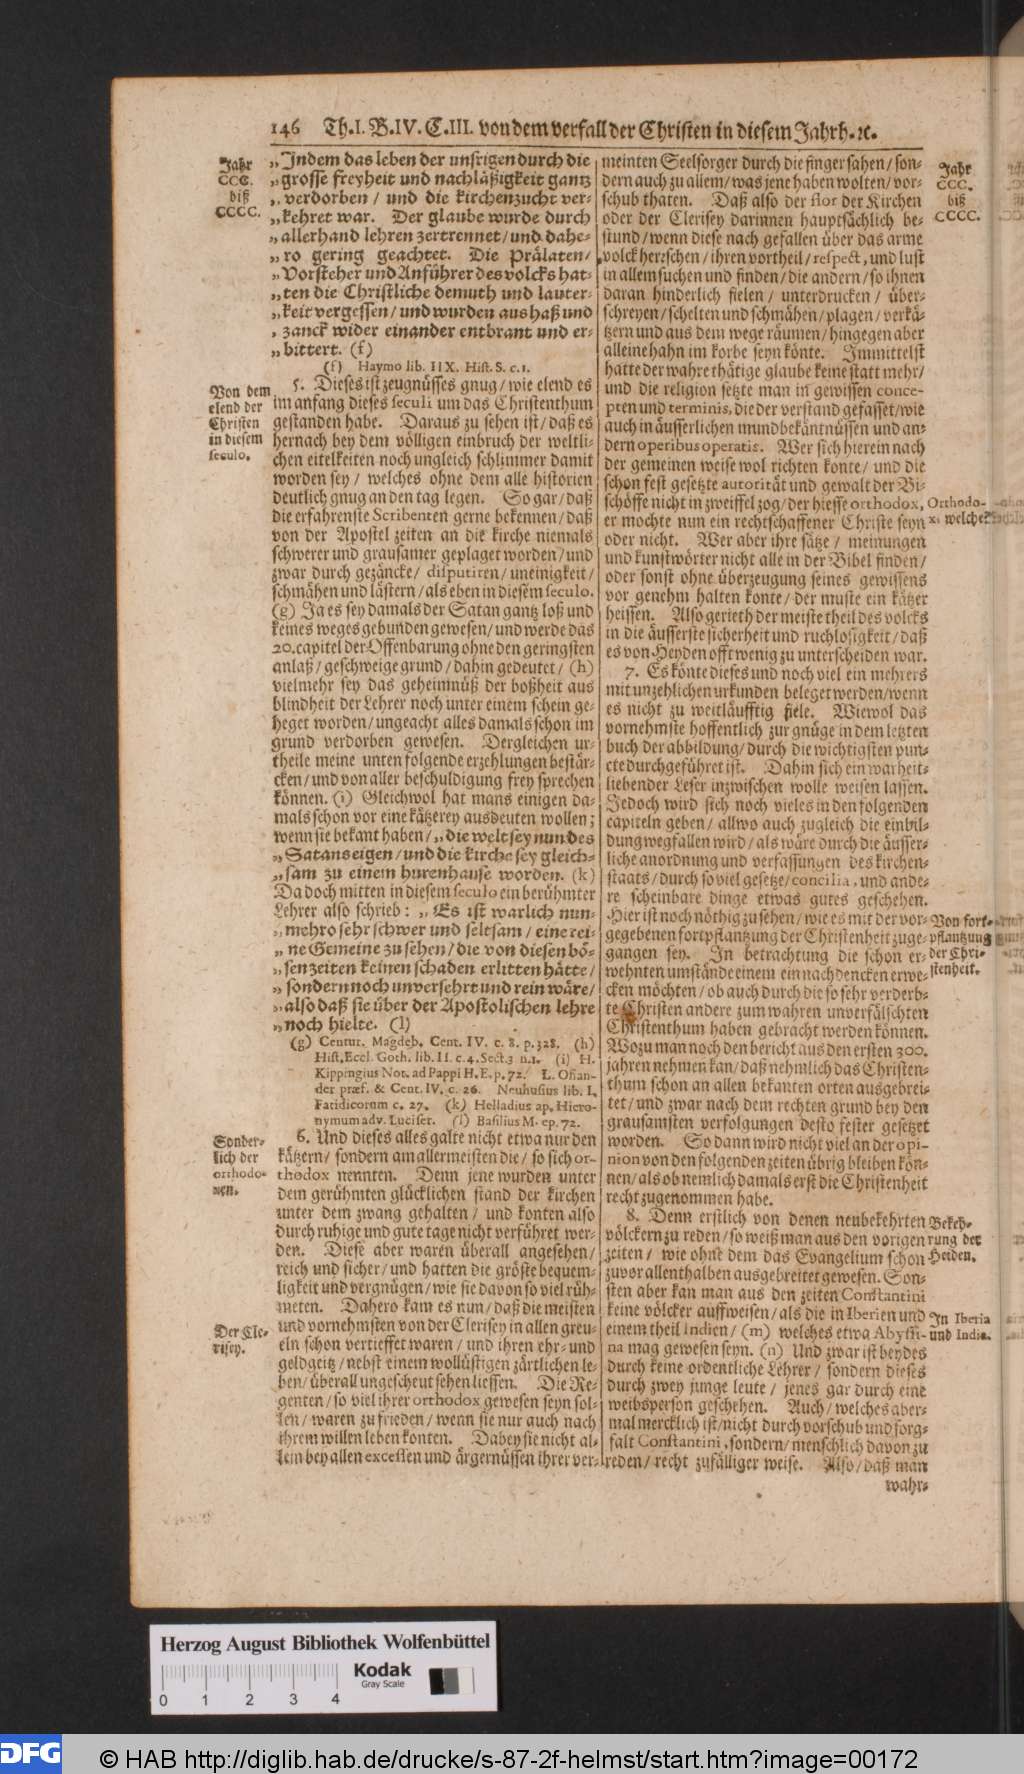 146 Th.I. B.IV. C.III. von dem verfall der Christen in diesem Jahrh.ꝛc.
Jahr
CCC.
biß
CCCC.
„Indem das leben der unsrigen durch die
„grosse freyheit und nachläßigkeit gantz
„verdorben/ und die kirchenzucht ver-
„kehret war. Der glaube wurde durch
„allerhand lehren zertrennet/ und dahe-
„ro gering geachtet. Die Prälaten/
„Vorsteher und Anführer des volcks hat-
„ten die Christliche demuth und lauter-
„keit vergessen/ und wurden aus haß und
„zanck wider einander entbrant und er-
„bittert. (f)
(f) Haymo lib. IIX. Hist. S. c. 1.
Von dem
elend der
Christen
in diesem
seculo.
5. Dieses ist zeugnüsses gnug/ wie elend es
im anfang dieses seculi um das Christenthum
gestanden habe. Daraus zu sehen ist/ daß es
hernach bey dem völligen einbruch der weltli-
chen eitelkeiten noch ungleich schlimmer damit
worden sey/ welches ohne dem alle historien
deutlich gnug an den tag legen. So gar/ daß
die erfahrenste Scribenten gerne bekennen/ daß
von der Apostel zeiten an die kirche niemals
schwerer und grausamer geplaget worden/ und
zwar durch gezäncke/ disputiren/ uneinigkeit/
schmähen und lästern/ als eben in diesem seculo.
(g) Ja es sey damals der Satan gantz loß und
keines weges gebunden gewesen/ und werde das
20. capitel der Offenbarung ohne den geringsten
anlaß/ geschweige grund/ dahin gedeutet/ (h)
vielmehr sey das geheimnüß der boßheit aus
blindheit der Lehrer noch unter einem schein ge-
heget worden/ ungeacht alles damals schon im
grund verdorben gewesen. Dergleichen ur-
theile meine unten folgende erzehlungen bestär-
cken/ und von aller beschuldigung frey sprechen
können. (i) Gleichwol hat mans einigen da-
mals schon vor eine kätzerey ausdeuten wollen;
wenn sie bekant haben/ „die welt sey nun des
„Satans eigen/ und die kirche sey gleich-
„sam zu einem hurenhause worden. (k)
Da doch mitten in diesem seculo ein berühmter
Lehrer also schrieb: „Es ist warlich nun-
„mehro sehr schwer und seltsam/ eine rei-
„ne Gemeine zu sehen/ die von diesen bö-
„sen zeiten keinen schaden erlitten hätte/
„sondern noch unversehrt und rein wäre/
„also daß sie über der Apostolischen lehre
„noch hielte. (l)
(g) Centur. Magdeb. Cent. IV. c. 8. p. 328. (h)
Hist. Eccl. Goth. lib. II. c. 4. Sect. 3 n. 1. (i) H.
Kippingius Not. ad Pappi H. E. p. 72. L. Osian-
der præf. & Cent. IV. c. 26. Neuhusius lib. I.
Fatidicorum c. 27. (k) Helladius ap. Hiero-
nymum adv. Lucifer. (l) Basilius M. ep. 72.
Sonder-
lich der
orthodo-
xen.
6. Und dieses alles galte nicht etwa nur den
kätzern/ sondern am allermeisten die/ so sich or-
thodox nennten. Denn jene wurden unter
dem gerühmten glücklichen stand der kirchen
unter dem zwang gehalten/ und konten also
durch ruhige und gute tage nicht verführet wer-
den. Diese aber waren überall angesehen/
reich und sicher/ und hatten die gröste bequem-
ligkeit und vergnügen/ wie sie davon so viel rüh-
meten. Dahero kam es nun/ daß die meisten
Der Cle-
risey.
und vornehmsten von der Clerisey in allen greu-
eln schon vertieffet waren/ und ihren ehr- und
geldgeitz/ nebst einem wollüstigen zärtlichen le-
ben/ überall ungescheut sehen liessen. Die Re-
genten/ so viel ihrer orthodox gewesen seyn sol-
len/ waren zu frieden/ wenn sie nur auch nach
ihrem willen leben konten. Dabey sie nicht al-
lein bey allen excessen und ärgernüssen ihrer ver-
meinten Seelsorger durch die finger sahen/ son-
dern auch zu allem/ was jene haben wolten/ vor-
schub thaten. Daß also der flor der Kirchen
oder der Clerisey darinnen hauptsächlich be-
stund/ wenn diese nach gefallen über das arme
volck herrschen/ ihren vortheil/ respect, und lust
in allem suchen und finden/ die andern/ so ihnen
daran hinderlich fielen/ unterdrucken/ über-
schreyen/ schelten und schmähen/ plagen/ verkä-
tzern und aus dem wege räumen/ hingegen aber
alleine hahn im korbe seyn könte. Immittelst
hatte der wahre thätige glaube keine statt mehr/
und die religion setzte man in gewissen conce-
pten und terminis, die der verstand gefasset/ wie
auch in äusserlichen mundbekäntnüssen und an-
dern operibus operatis. Wer sich hierein nach
der gemeinen weise wol richten konte/ und die
schon fest gesetzte autorität und gewalt der Bi-
schöffe nicht in zweiffel zog/ der hiesse orthodox,
er mochte nun ein rechtschaffener Christe seyn
oder nicht. Wer aber ihre sätze/ meinungen
und kunstwörter nicht alle in der Bibel finden/
oder sonst ohne überzeugung seines gewissens
vor genehm halten konte/ der muste ein kätzer
heissen. Also gerieth der meiste theil des volcks
in die äusserste sicherheit und ruchlosigkeit/ daß
es von Heyden offt wenig zu unterscheiden war.
7. Es könte dieses und noch viel ein mehrers
mit unzehlichen urkunden beleget werden/ wenn
es nicht zu weitläufftig fiele. Wiewol das
vornehmste hoffentlich zur gnüge in dem letzten
buch der abbildung/ durch die wichtigsten pun-
cte durchgeführet ist. Dahin sich ein warheit-
liebender Leser inzwischen wolle weisen lassen.
Jedoch wird sich noch vieles in den folgenden
capiteln geben/ allwo auch zugleich die einbil-
dung wegfallen wird/ als wäre durch die äusser-
liche anordnung und verfassungen des kirchen-
staats/ durch so viel gesetze/ concilia, und ande-
re scheinbare dinge etwas gutes geschehen.
Hier ist noch nöthig zu sehen/ wie es mit der vor-
gegebenen fortpflantzung der Christenheit zuge-
gangen sey. In betrachtung die schon er-
wehnten umstände einem ein nachdencken erwe-
cken möchten/ ob auch durch die so sehr verderb-
te Christen andere zum wahren unverfälschten
Christenthum haben gebracht werden können.
Wozu man noch den bericht aus den ersten 300.
jahren nehmen kan/ daß nehmlich das Christen-
thum schon an allen bekanten orten ausgebrei-
tet/ und zwar nach dem rechten grund bey den
grausamsten verfolgungen desto fester gesetzet
worden. So dann wird nicht viel an der opi-
nion von den folgenden zeiten übrig bleiben kön-
nen/ als ob nemlich damals erst die Christenheit
recht zugenommen habe.
8. Denn erstlich von denen neubekehrten
völckern zu reden/ so weiß man aus den vorigen
zeiten/ wie ohne dem das Evangelium schon
zuvor allenthalben ausgebreitet gewesen. Son-
sten aber kan man aus den zeiten Constantini
keine völcker auffweisen/ als die in Iberien und
einem theil Indien/ (m) welches etwa Abyssi-
na mag gewesen seyn. (n) Und zwar ist beydes
durch keine ordentliche Lehrer/ sondern dieses
durch zwey junge leute/ jenes gar durch eine
weibsperson geschehen. Auch/ welches aber-
mal mercklich ist/ nicht durch vorschub und sorg-
falt Constantini, sondern/ menschlich davon zu
reden/ recht zufälliger weise. Also/ daß man
wahr-
Jahr
CCC.
biß
CCCC.
Orthodo-
xi welche?
Von fort-
pflantzung
der Chri-
stenheit.
Bekeh-
rung der
Heiden.
In Iberia
und India.
Herzog August Bibliothek Wolfenbüttel
Kodak
Gray Scale
0 1 2 3 4
DFG © HAB http://diglib.hab.de/drucke/s-87-2f-helmst/start.htm?image=00172